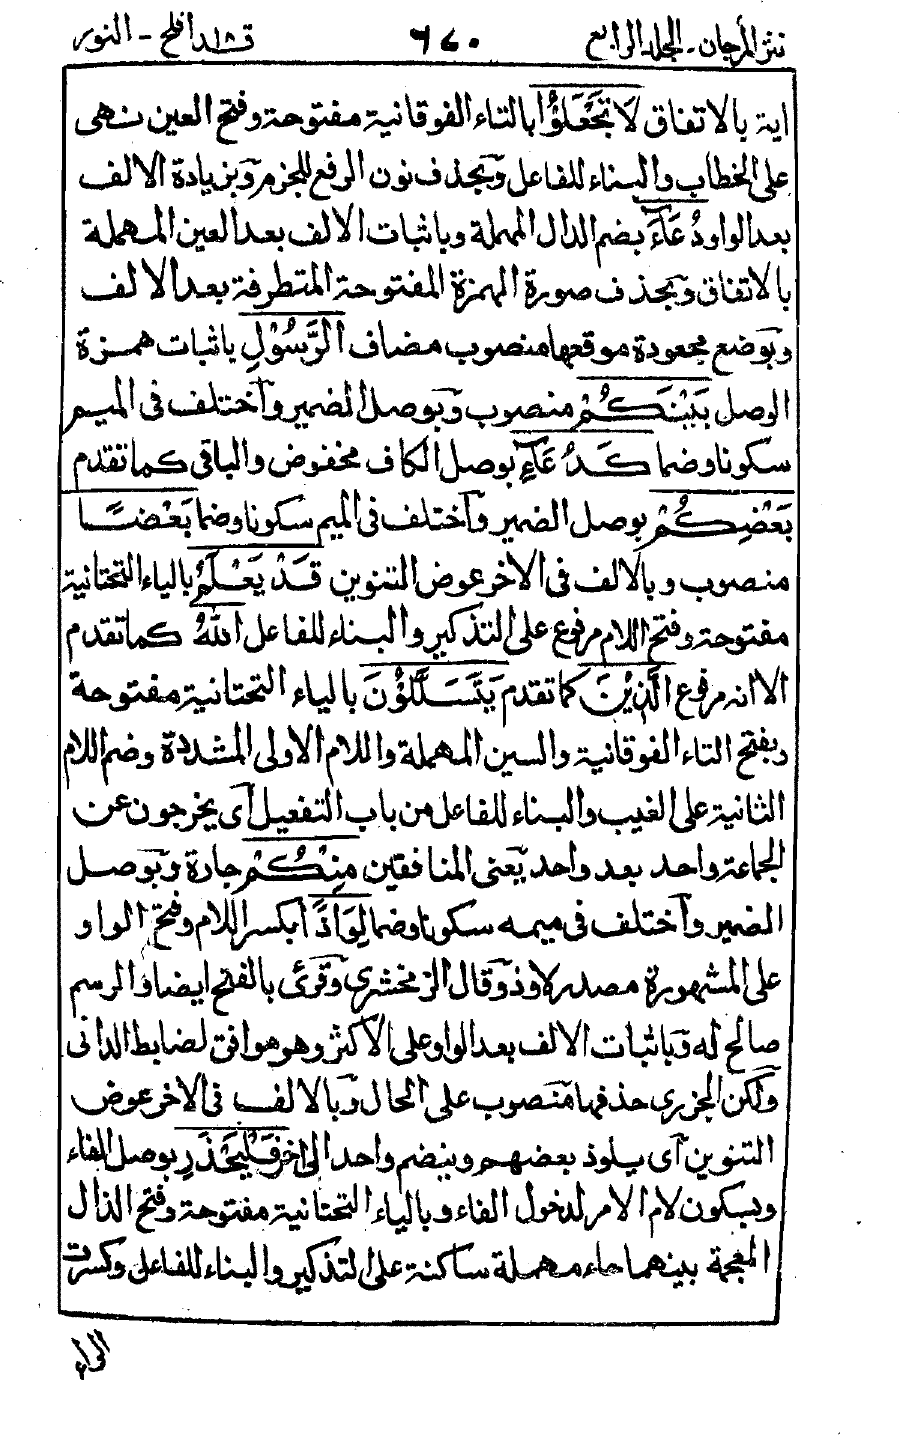 نثر المرجان - الجلد الرابع ٦٧٠ قد افلح ١٨ - النور
اية بالاتفاق لَا تَجْعَلُوْا بالتاء الفوقانية مفتوحة وفتح العين نهى
على الخطاب والبناء للفاعل وبحذف نون الرفع للجزم وبزيادة الالف
بعد الواو دُعَآءَ بضم الدال المهملة وباثبات الالف بعد العين المهملة
بالاتفاق وبحذف صورة الهمزة المفتوحة المتطرفة بعد الالف
وبوضع مجعودة موقعها منصوب مضاف الرَّسُوْلِ باثبات همزة
الوصل بَيْنَكُمْ منصوب وبوصل الضمير واختلف فى الميم
سكونا وضما كَدُعَآءِ بوصل الكاف مخفوض والباقى كما تقدم
بَعْضِكُمْ بوصل الضمير واختلف فى الميم سكونا وضما بَعْضًا
منصوب وبالالف فى الاخر عوض التنوين قَدْ يَعْلَمُ بالياء التحتانية
مفتوحة وفتح اللام مرفوع على التذكير والبناء للفاعل اللّٰهُ كما تقدم
الا انه مرفوع الَّذِيْنَ كما تقدم يَتَسَلَّلُوْنَ بالياء التحتانية مفتوحة
وبفتح التاء الفوقانية والسين المهملة واللام الاولى المشددة وضم اللام
الثانية على الغيب والبناء للفاعل من باب التفعيل اى يخرجون عن
الجماعة واحد بعد واحد يعنى المنافقين مِنْكُمْ جارة وبوصل
الضمير واختلف فى ميمه سكونا وضما لِوَاذًا بكسر اللام وفتح الواو
على المشهورة مصدر لاوذ وقال الزمخشرى وقرئ بالفتح ايضا والرسم
صالح له وباثبات الالف بعد الواو على الاكثر وهو موافق لضابط الدانى
ولكن الجزرى حذفها منصوب على الحال وبالالف فى الاخر عوض
التنوين اى يلوذ بعضهم وينضم واحد الى اخر فَلْيَحْذَرِ بوصل الفاء
وبسكون لام الامر لدخول الفاء وبالياء التحتانية مفتوحة وفتح الذال
المعجمة بينهما حاء مهملة ساكنة على التذكير والبناء للفاعل وكسرت
الراء